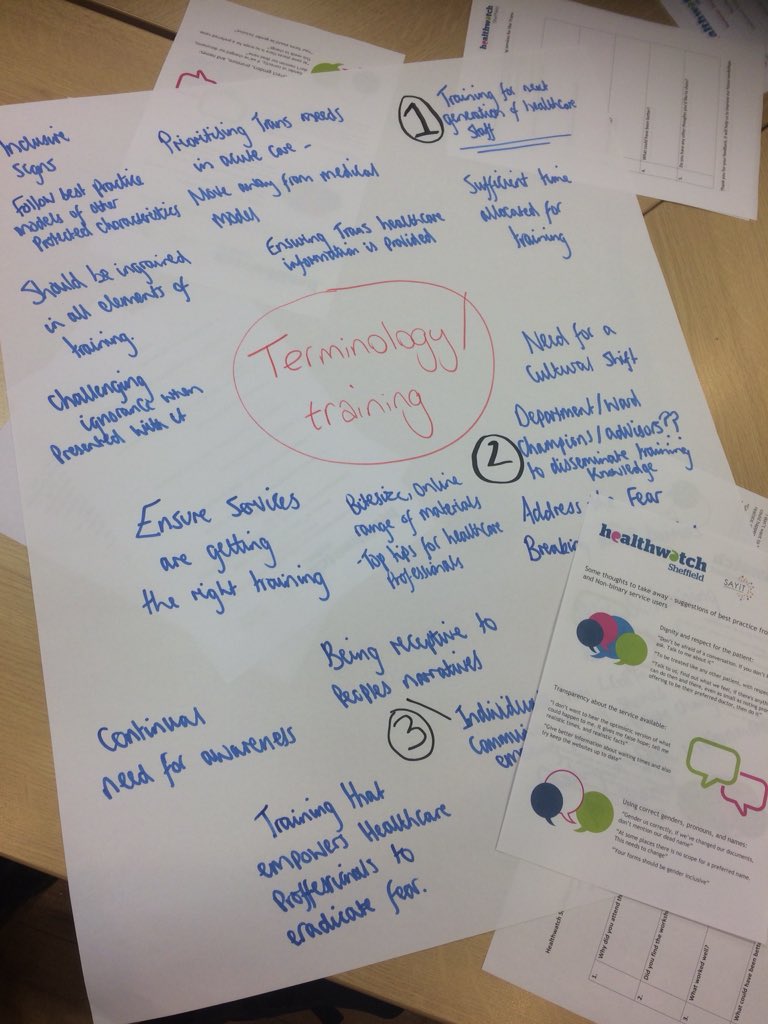 Inclusive
Signs
Follow best practice
models of other
Protected characteristics
Should be ingrained
in all elements of
training.
Challenging
ignorance when
Presented with it
Prioritising Trans needs
in acute care -
Move away from medical
model
Ensuring Trans healthcare
information is provided
1
Training for next
generation of healthcare
staff
Sufficient time
allocated for
training
Terminology/
training
Need for a
Cultural Shift
2
Department/Ward
Champions/advisors??
to disseminate training
Knowledge
Address
Fear
Ensure Services
are getting
the right training
Bitesize, Online
range of materials
-Top tips for healthcare
Professionals
Being receptive to
Peoples narratives
3
Continual
need for awareness
Training that
empowers Healthcare
Proffessionals to
eradicate fear.
healthwatch
Sheffield
SAYiT
Some thoughts to take away - suggestions of best practice
and Non-binary service users
Dignity and respect for the patient:
"Don't be afraid of a conversation. If you don't
ask. Talk to me about it"
"To be treated like any other patient, with
"Talk to us, find out what we feel, if there's
can do then and there, even as small as noting
offering to be their preferred doctor, then do it"
Transparency about the service available:
"I don't want to hear the optimistic version of what
could happen to me. It gives me false hope; tell me
realistic times, and realistic facts"
"Give better information about waiting times and also
try keep the websites up to date"
Using correct genders, pronouns, and names:
"Gender us correctly, if we've changed our documents,
don't mention our dead name"
"At some places there is no scope for a preferred name.
This needs to change"
"Your forms should be gender inclusive"
Healthwatch S
1.
Why did you attend
2.
Did you find the
3.
What worked well?
What could have been
healthwatch
4.
What could have been better?
5.
Do you have any other thoughts and
Thank you for your feedback, it will help us to improve our future workshops